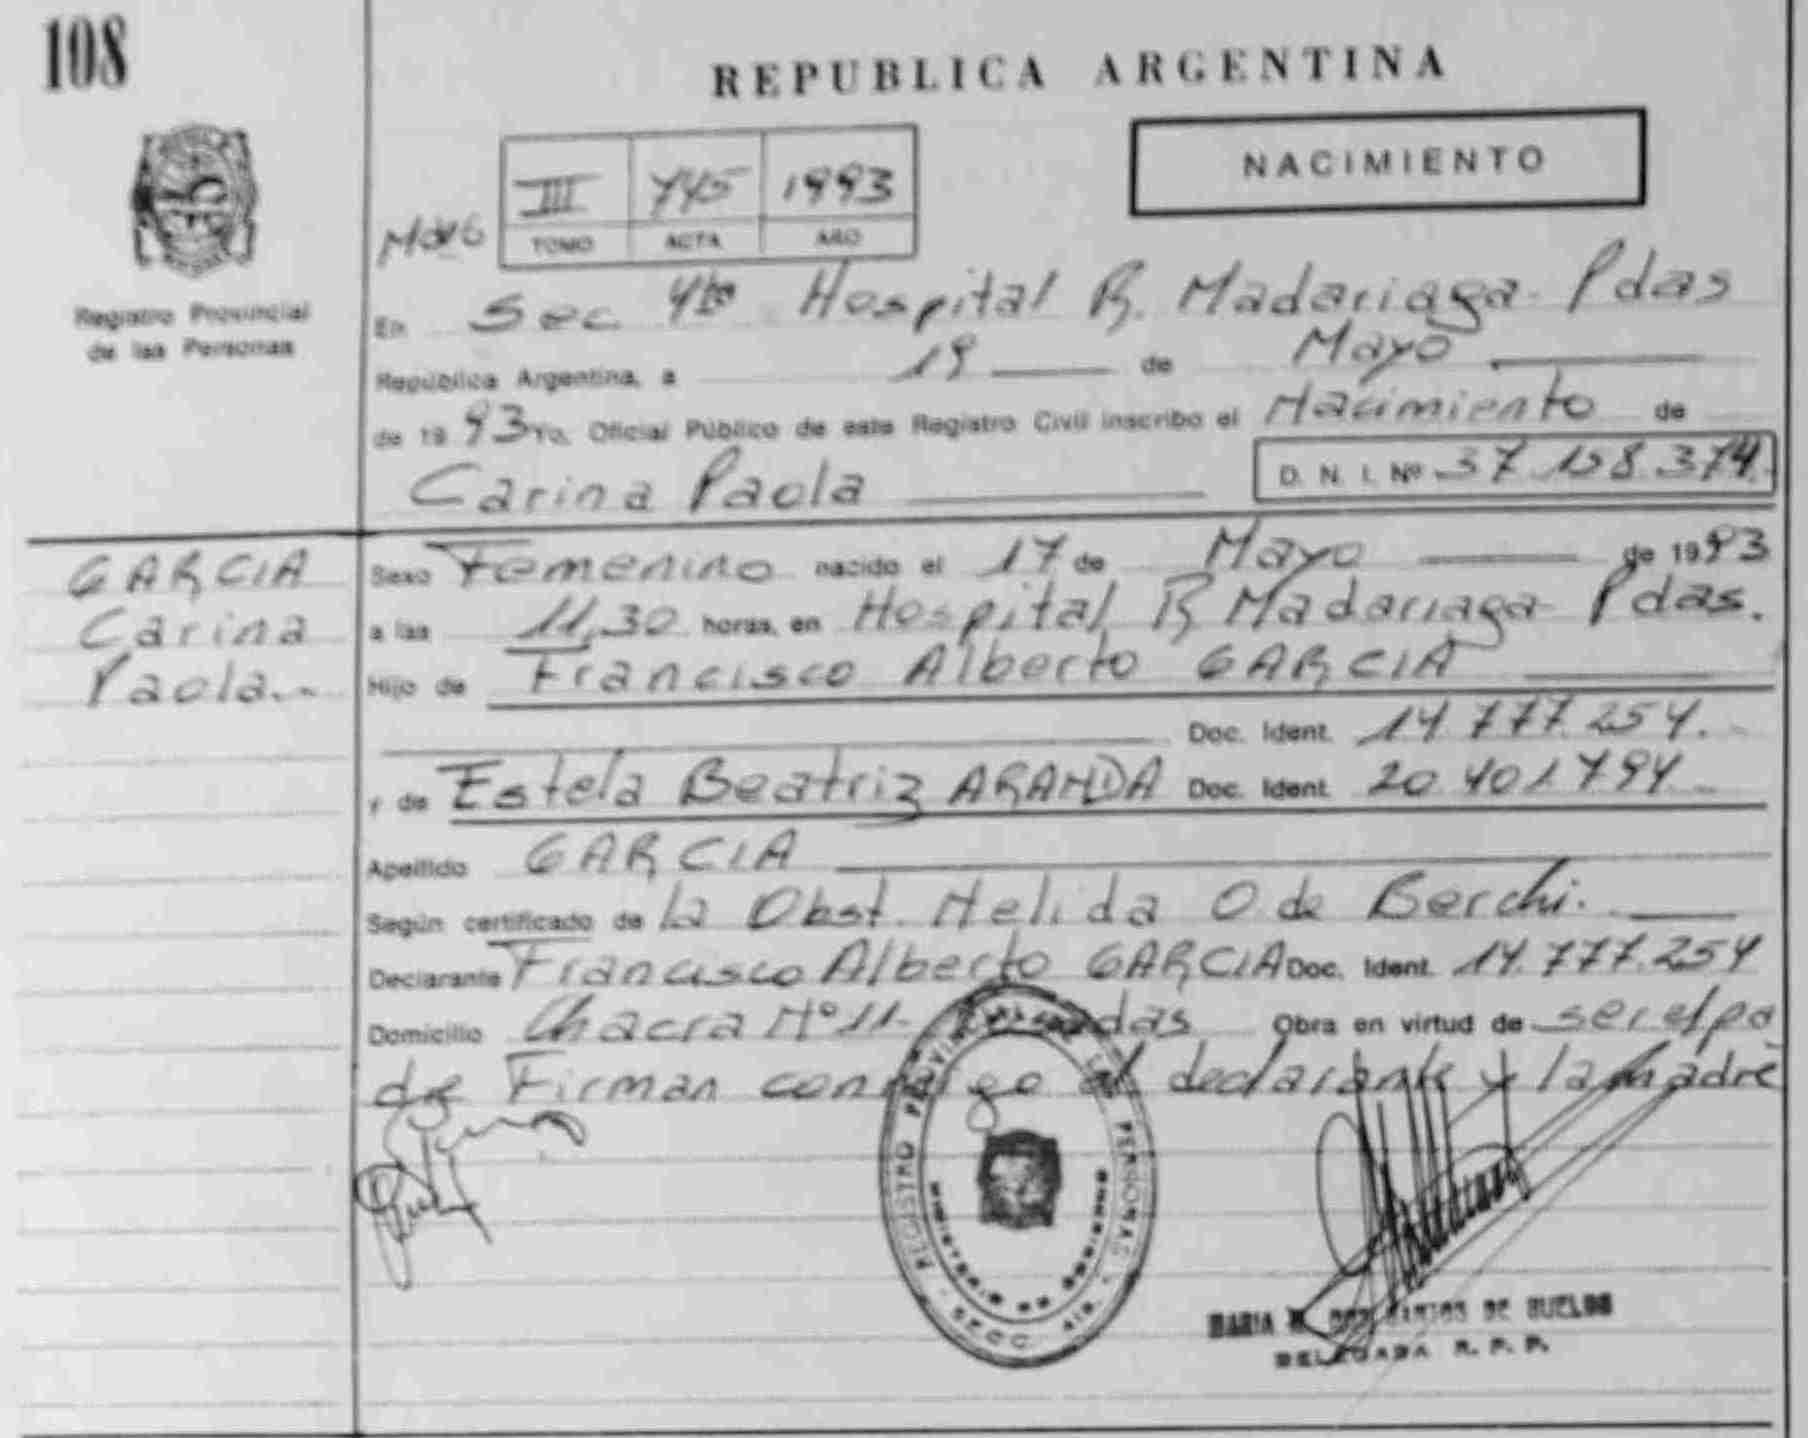 108
REPUBLICA ARGENTINA
NACIMIENTO
III 745 1993
TOMO ACTA AÑO
Registro Provincial
de las Personas
En Sec. 4ta Hospital R. Madariaga - Pdas
República Argentina, a 19 de Mayo
de 1993 Yo, Oficial Público de este Registro Civil inscribo el Nacimiento de
Carina Paola D. N. I. Nº 37.158.374.
GARCIA
Carina
Paola.-
Sexo Femenino nacido el 17 de Mayo de 1993
a las 11,30 horas, en Hospital R Madariaga - Pdas.
Hijo de Francisco Alberto GARCIA
Doc. Ident. 14.777.254.-
y de Estela Beatriz ARANDA Doc. Ident. 20.401.794.-
Apellido GARCIA
Según certificado de la Obst. Nelida O. de Berchi.
Declarante Francisco Alberto GARCIA Doc. Ident. 14.777.254
Domicilio Chacra Nº 11- Obra en virtud de ser el pa
dre Firman conmigo el declarante y la madre
REGISTRO PROVINCIAL DE LAS PERSONAS
MINISTERIO DE GOBIERNO
SECC. 4ta.
MARIA DOS SANTOS DE
DELEGADA R. P. P.